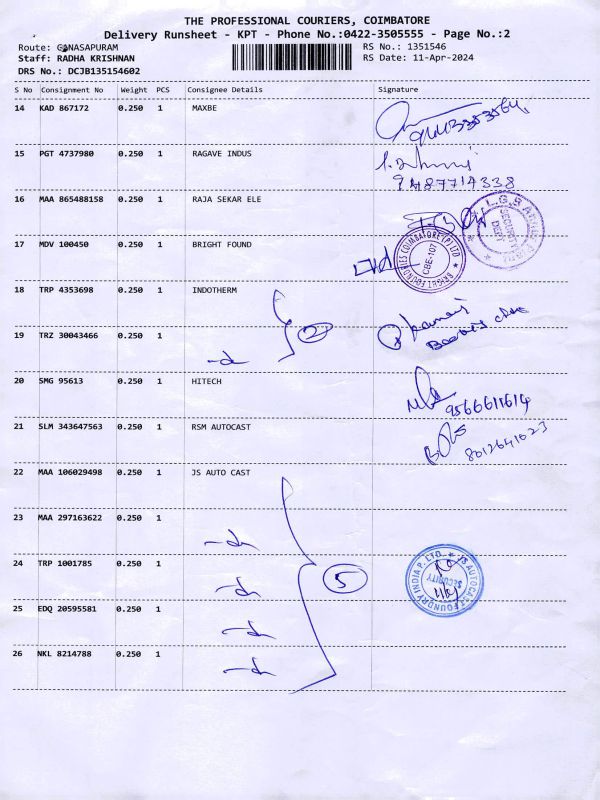 THE PROFESSIONAL COURIERS, COIMBATORE
Delivery Runsheet - KPT - Phone No.:0422-3505555 - Page No.:2
Route: GANASAPURAM
Staff: RADHA KRISHNAN
DRS No.: DCJB135154602
RS No.: 1351546
RS Date: 11-Apr-2024
S No Consignment No Weight PCS Consignee Details Signature
14 KAD 867172 0.250 1 MAXBE
15 PGT 4737980 0.250 1 RAGAVE INDUS
9487714338
16 MAA 865488158 0.250 1 RAJA SEKAR ELE
SECURITY DEPT
17 MDV 100450 0.250 1 BRIGHT FOUND
BRIGHT FOUNDRIES COIMBATORE (P) LTD
CBE-107
18 TRP 4353698 0.250 1 INDOTHERM
2
19 TRZ 30043466 0.250 1
20 SMG 95613 0.250 1 HITECH
9566611614
21 SLM 343647563 0.250 1 RSM AUTOCAST
8012641023
22 MAA 106029498 0.250 1 JS AUTO CAST
23 MAA 297163622 0.250 1
24 TRP 1001785 0.250 1
5
JS AUTOCAST FOUNDRY INDIA P. LTD.
SECURITY
25 EDQ 20595581 0.250 1
26 NKL 8214788 0.250 1